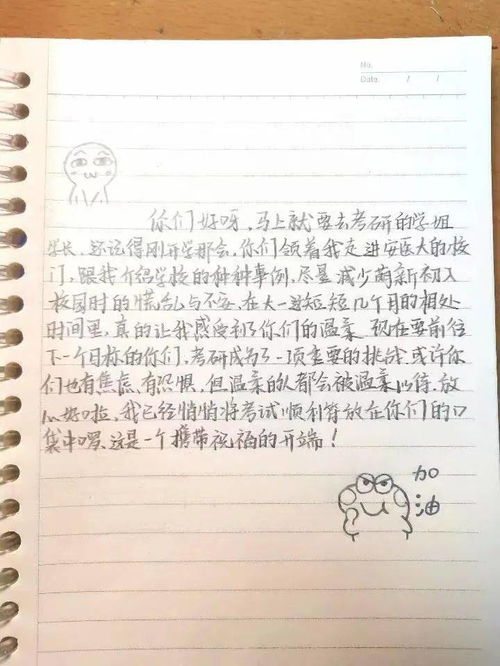 No.
Date / /
你们好呀,马上就要去考研的学姐
学长,还记得刚开学那会,你们领着我走进安医大的校
门,跟我介绍学校的种种事例,尽量减少萌新初入
校园时的慌乱与不安,在大一这短短几个月的相处
时间里,真的让我感受到了你们的温柔 现在要前往
下一个目标的你们,考研成为了一项重要的挑战 或许你
们也有焦虑,有恐惧,但温柔的人都会被温柔以待,放
心好啦,我已经悄悄将考试顺利符放在你们的口
袋中啰,这是一个携带祝福的开端!
加
油